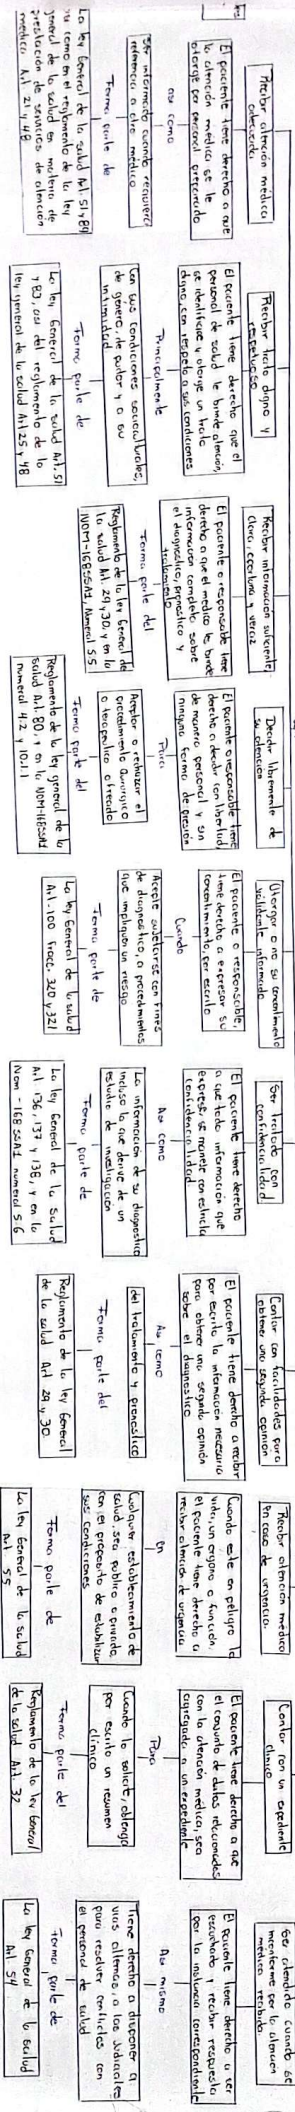 Recibir atención médica
adecuada
El paciente tiene derecho a que
la atención médica se le
otorge por personal preparado
así como
ser informado cuando requiera
referencia a otro médico
Forma parte de
La ley General de la salud Art. 51 y 89
así como en el reglamento de la ley
general de la salud en materia de
prestación de servicios de atención
médica. Art 21 y 48
Recibir trato digno y
respetuoso
El paciente tiene derecho que el
personal de salud le brinde atención,
se identifique y otorge un trato
digno, con respeto a sus condiciones
Principalmente
Con sus condiciones socioculturales,
de género, de pudor y a su
intimidad
Forma parte de
La ley General de la salud Art. 51
y 83, así del reglamento de la
ley general de la salud Art 25 y 48
Recibir información suficiente,
clara, oportuna y veraz
El paciente o responsable tiene
derecho a que el medico les brinde
información completa sobre
el diagnostico, pronostico y
tratamiento
Forma parte del
Reglamento de la ley General de
la salud Art. 29 y 30, y en la
NOM-168SSA1 Numeral 5.5
Decidir libremente de
su atención
El paciente o responsable tiene
derecho a decidir con libertad
de manera personal y sin
ninguna forma de presión
Para
Aceptar o rechazar el
procedimiento Quirurgico
o terapeutico ofrecido
Forma parte del
Reglamento de la ley general de la
salud Art. 80, y en la NOM-168SSA1
numeral 4.2 y 10.1.1
Otorgar o no su concentimiento
válidamente informado
El paciente o responsable,
tiene derecho a expresar su
concentimiento, por escrito
Cuando
Acepte sujetarse con fines
de diagnostico, o procedimientos
que impliquen un riesgo
Forma parte de
La ley General de la salud
Art. 100 Fracc. 320 y 321
Ser tratado con
confidencialidad
El paciente tiene derecho
a que toda información que
exprese, se maneje con estricta
confidencialidad
Así como
La información de su diagnostico
incluso la que derive de un
estudio de investigación
Forma parte de
La ley General de la salud
Art 136, 137 y 138, y en la
Nom - 168 SSA1 numeral 5.6
Contar con facilidades para
obtener una segunda opinión
El paciente tiene derecho a recibir
por escrito la información necesaria
para obtener una segunda opinión
sobre el diagnostico
Así como
del tratamiento y pronostico
Forma parte del
Reglamento de la ley General
de la salud Art 29 y 30.
Recibir atención médica
en caso de urgencia
Cuando este en peligro la
vida, un organo o función,
el paciente tiene derecho a
recibir atención de urgencia
en
Cualquer establecimiento de
salud, sea publico o privado,
con el proposito de estabilizar
sus condiciones
Forma parte de
La ley General de la salud
Art 55
Contar con un expediente
clinico
El paciente tiene derecho a que
el conjunto de datos relacionados
con la atención médica, sea
agregado a un expediente
Para
Cuando lo solicite, obtenga
por escrito un resumen
clinico
Forma parte del
Reglamento de la ley General
de la salud Art. 32
Ser atendido cuando se
inconforme por la atencion
médica recibida
El paciente tiene derecho a ser
escuchado y recibir respuesta
por la instancia correspondiente
Así mismo
Tiene derecho a disponer a
vias alternas, a las judiciales
para resolver conflictos con
el personal de salud
Forma parte de
La ley General de la salud
Art. 54